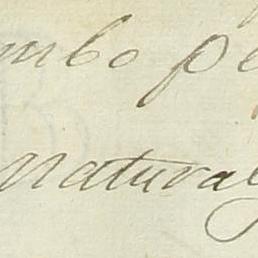 mbo pe
natural